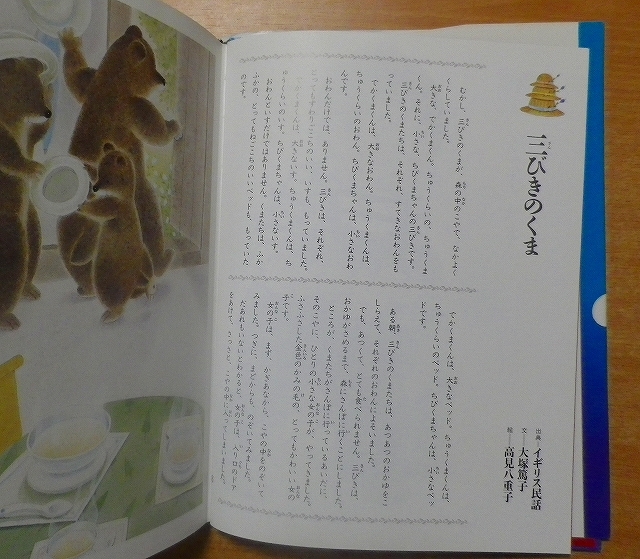 三びきのくま
出典―イギリス民話
文―大塚篤子
絵―高見八重子
むかし、三びきのくまが、森の中のこやで、なかよく
くらしていました。
大きな、でかくまくん。ちゅうくらいの、ちゅうくま
くん。それに、小さな、ちびくまちゃんの三びきです。
三びきのくまたちは、それぞれ、すてきなおわんをも
っていました。
でかくまくんは、大きなおわん。ちゅうくまくんは、
ちゅうくらいのおわん。ちびくまちゃんは、小さなおわ
んです。
おわんだけでは、ありません。三びきは、それぞれ、
とってもすわりごこちのいい、いすも、もっていました。
でかくまくんは、大きないす。ちゅうくまくんは、ち
ゅうくらいのいす。ちびくまちゃんは、小さないす。
おわんといすだけではありません。くまたちは、ふか
ふかの、とってもねごこちのいいベッドも、もっていた
のです。
でかくまくんは、大きなベッド。ちゅうくまくんは、
ちゅうくらいのベッド。ちびくまちゃんは、小さなベッ
ドです。
ある朝、三びきのくまたちは、あつあつのおかゆをこ
しらえて、それぞれのおわんによそいました。
でも、あつくて、とても食べられません。三びきは、
おかゆがさめるまで、森にさんぽに行くことにしました。
ところが、くまたちがさんぽに行っているあいだに、
そのこやに、ひとりの小さな女の子が、やってきました。
ふさふさした金色のかみの毛の、とってもかわいい女の
子です。
女の子は、まず、かぎあなから、こやの中をのぞいて
みました。つぎに、まどからも、のぞいてみました。
だあれもいないとわかると、女の子は、へいきでドア
をあけて、さっさと、こやの中へ入ってしまいました。